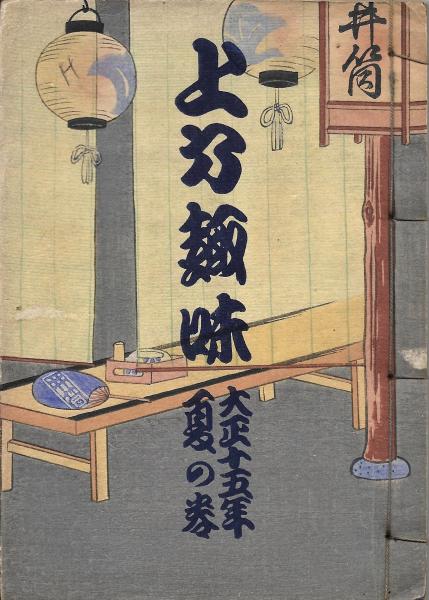 井筒
上方趣味
大正十五年
夏の巻